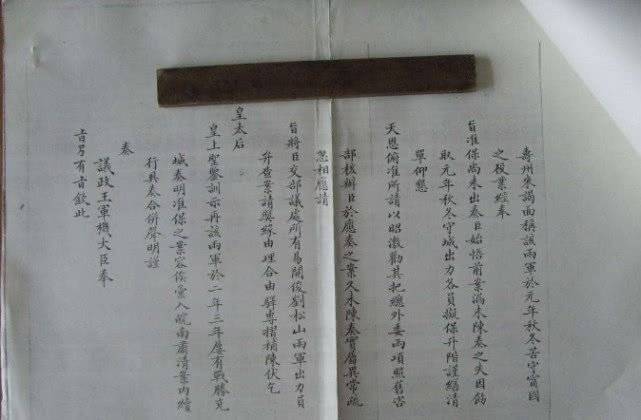 壽州來謁面稱該兩軍於元年秋冬苦守寗國
之役業經奉
旨准保尚未出奏日始悟前案漏未陳奏之失因飭
取元年秋冬守城出力各員擬保升階謹繕清
單仰懇
天恩俯准所請以昭激勸其把總外委兩項照舊咨
部核辦臣於應奏之案久未陳奏實屬異常疏
忽相應請
旨將臣交部議處所有易開俊劉松山兩軍出力員
弁查案請獎緣由理合由驛專摺補陳伏乞
皇太后
皇上聖鑒訓示再該兩軍於二年三年屢有戰勝克
城奏明准保之案容俟彙入皖南肅清案內續
行具奏合併聲明謹
奏
議政王軍機大臣奉
旨另有旨欽此